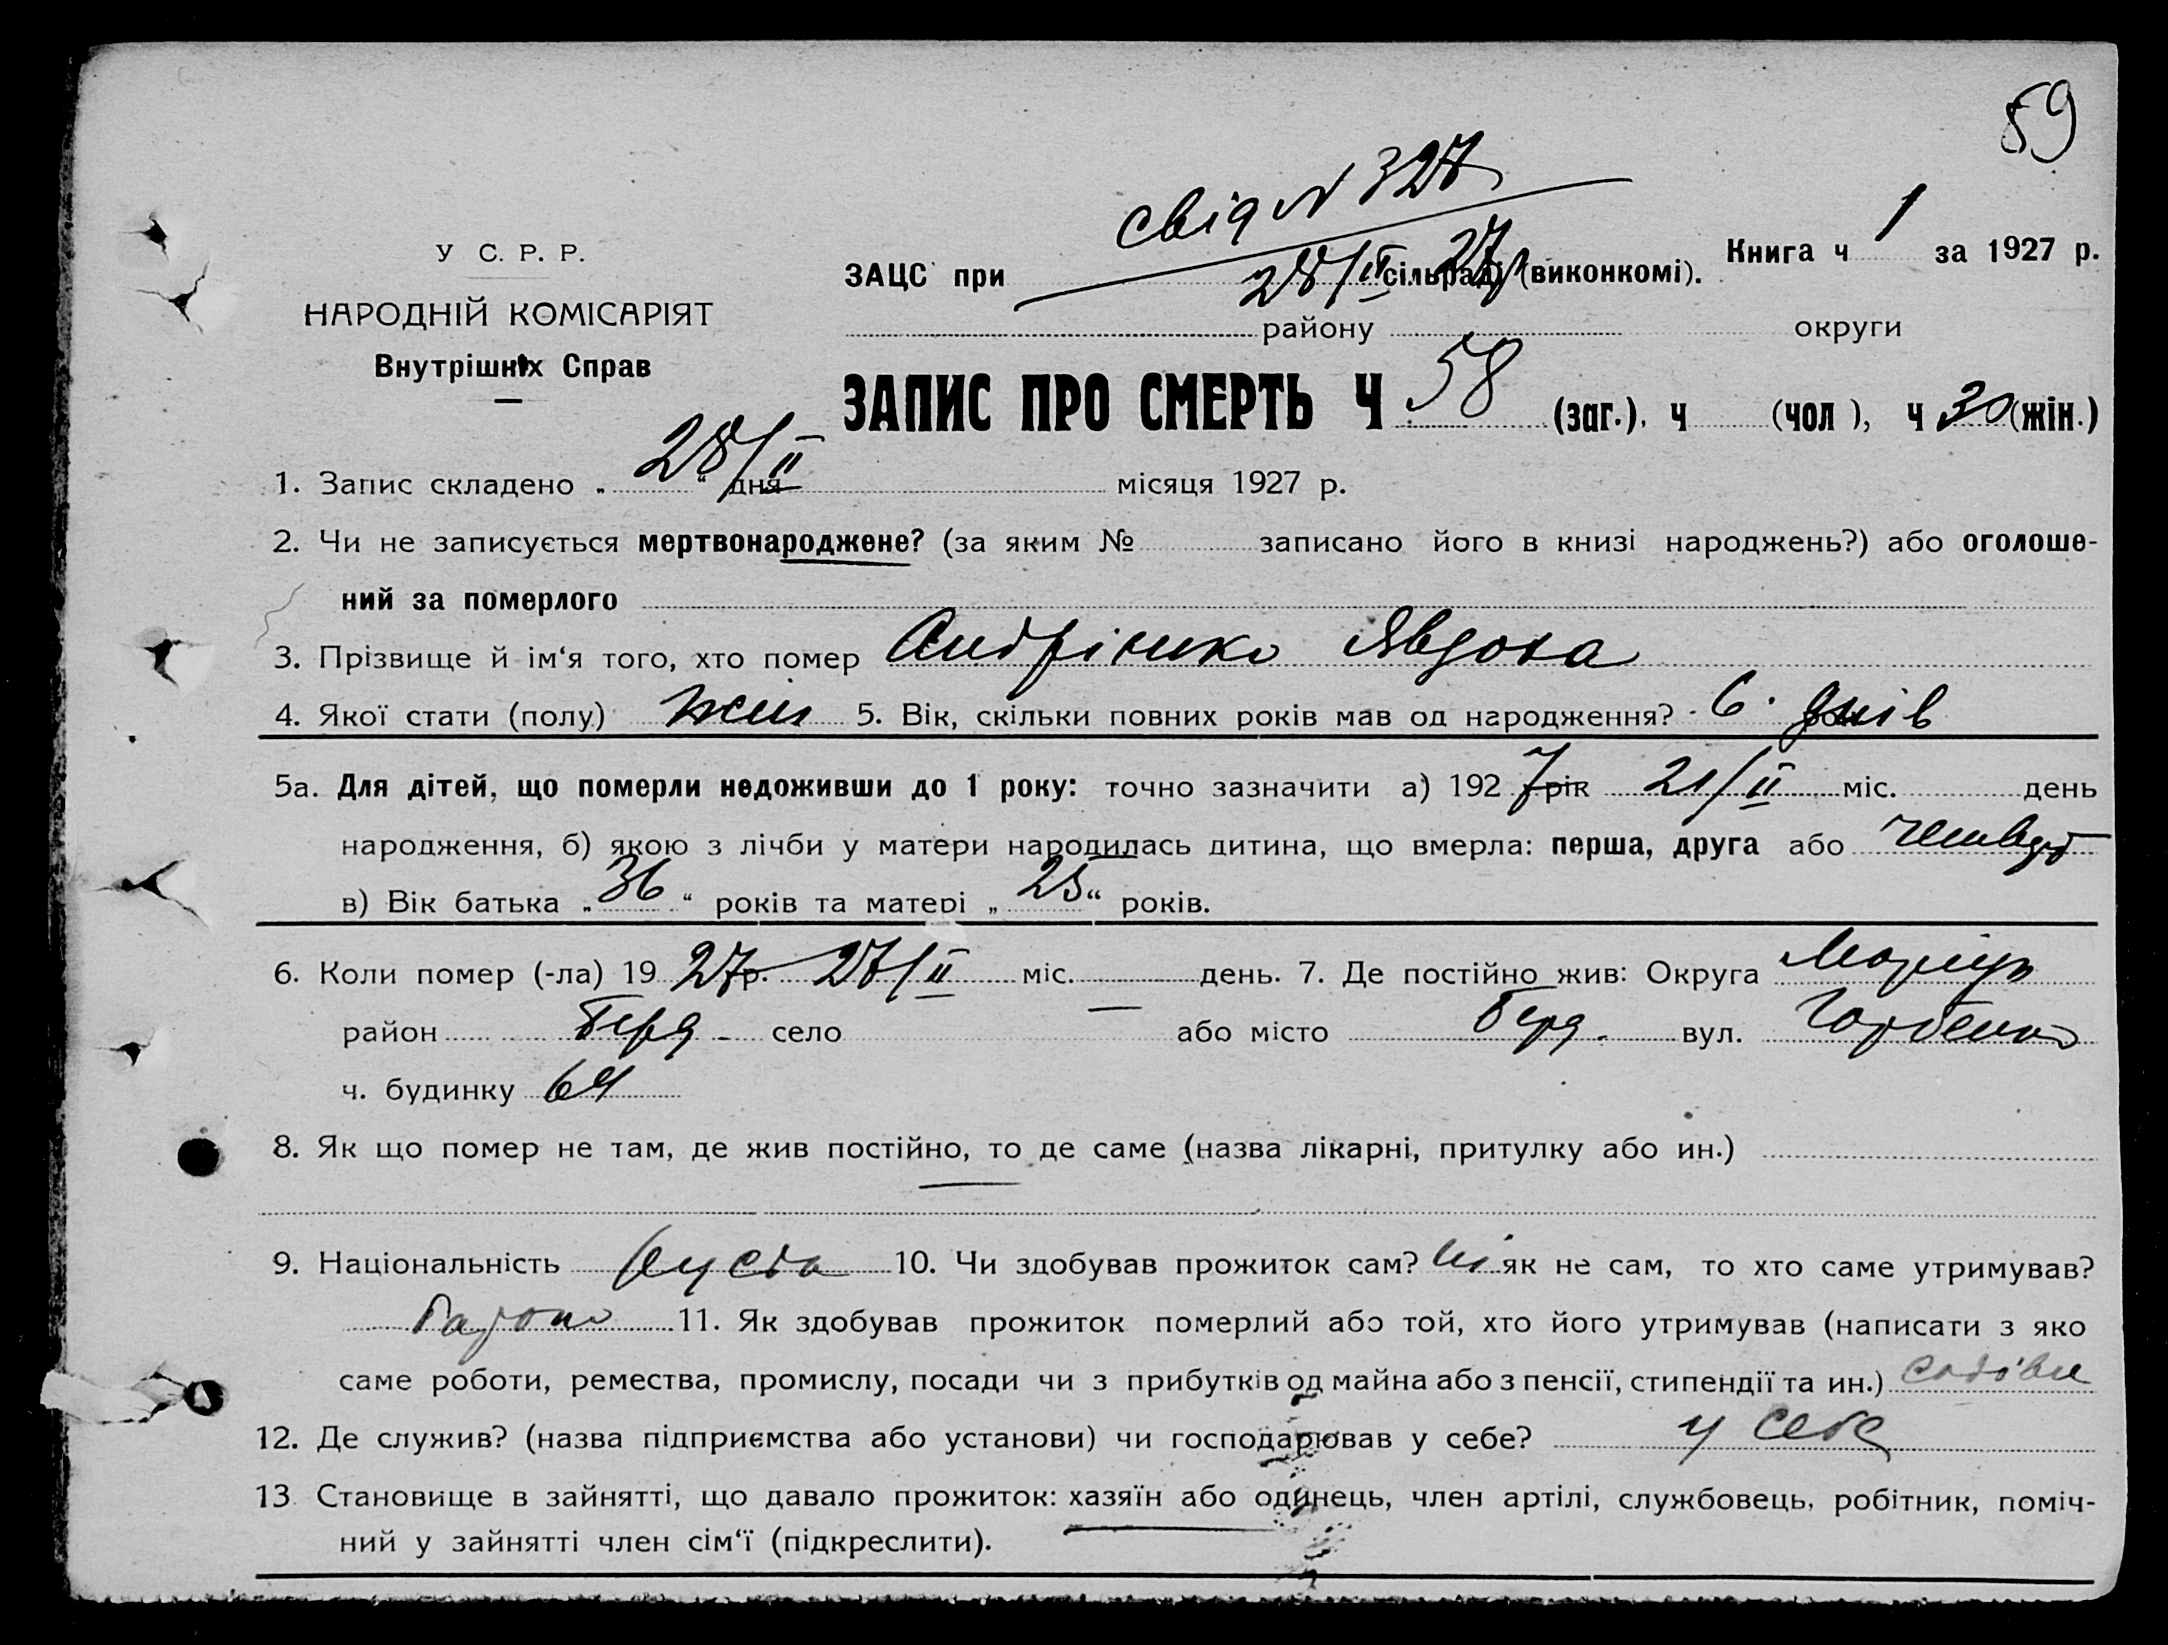 59
свід N 327
28/II 27 р
У С. Р. Р.
НАРОДНІЙ КОМІСАРІЯТ
Внутрішніх Справ
ЗАЦС при сільраді (виконкомі). Книга ч 1 за 1927 р.
району округи
ЗАПИС ПРО СМЕРТЬ Ч 58 (заг.), ч (чол), ч 30 (жін.)
1. Запис складено „ 28/II “ дня місяця 1927 р.
2. Чи не записується мертвонароджене? (за яким № записано його в книзі народжень?) або оголоше-
ний за померлого
3. Прізвище й ім‘я того, хто помер Андрієнко Явдоха
4. Якої стати (полу) жін 5. Вік, скільки повних років мав од народження? 6. днів
5а. Для дітей, що померли недоживши до 1 року: точно зазначити а) 192 7 рік 21/II міс. день
народження, б) якою з лічби у матери народилась дитина, що вмерла: перша, друга або
в) Вік батька „ 36 “ років та матері „ 25 “ років.
6. Коли помер (-ла) 19 27 р. 27/II міс. день. 7. Де постійно жив: Округа Маріуп
район Берд. село — або місто Берд. вул.
ч. будинку 64
8. Як що помер не там, де жив постійно, то де саме (назва лікарні, притулку або ин.)
9. Національність руська 10. Чи здобував прожиток сам? ні як не сам, то хто саме утримував?
батько 11. Як здобував прожиток померлий або той, хто його утримував (написати з яко
саме роботи, ремества, промислу, посади чи з прибутків од майна або з пенсії, стипендії та ин.)
12. Де служив? (назва підприємства або установи) чи господарював у себе? у себе
13 Становище в зайнятті, що давало прожиток: хазяїн або одинець, член артілі, службовець, робітник, поміч-
ний у зайнятті член сім‘ї (підкреслити).